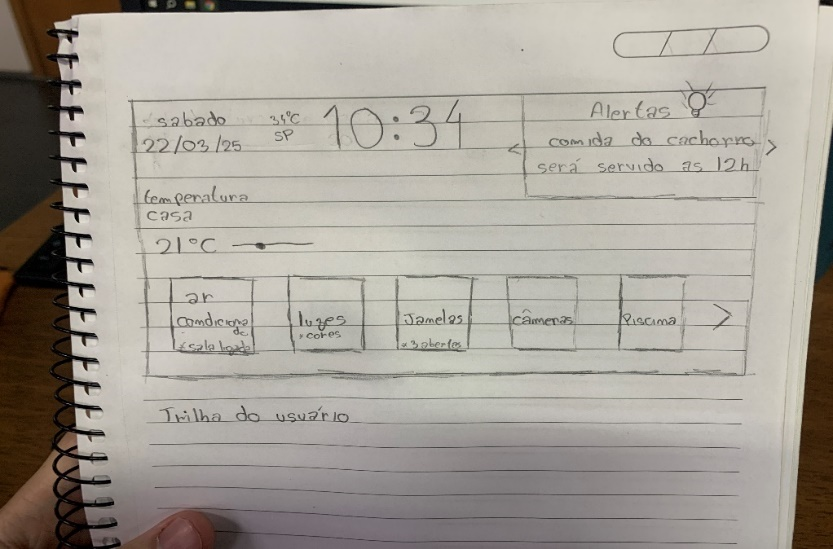 sabado
22/03/25
SP
10:34
Alertas
< comida do cachorro >
será servido as 12h
temperatura
casa
21°C
ar
condiciona
do
luzes
cores
Janelas
x 3 abertas
câmeras
Piscina
>
Trilha do usuário